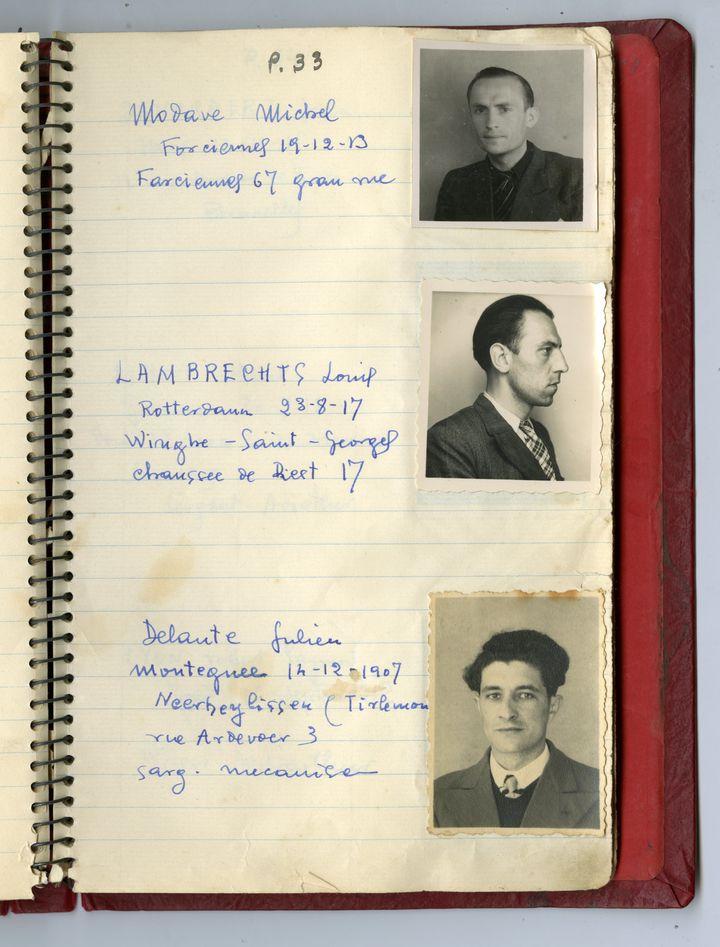 P. 33
Modave Michel
Farciennes 19-12-13
Farciennes 67 gran rue
LAMBRECHTS Louis
Rotterdam 23-8-17
Winghe - Saint - Georges
chaussee de Diest 17
Delante Julien
Montegnee 14-12-1907
Neerheylissem (Tirlemon
rue Ardevoer 3
sarg. mecanicien